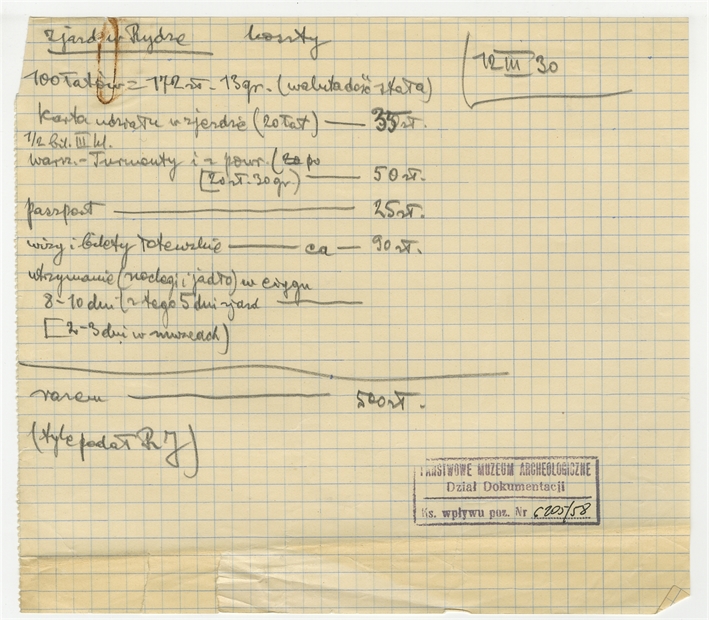 zjazd w Rydze koszty
12 III 30
100 łatów = 172 zł. 13 gr. (waluta dość stała)
Karta udziału w zjeździe (20 łat) — 35 zł.
1/2 bil. III kl.
Warsz. - Turmonty i z powr. (za po
[20 zł. 30 gr.) — 50 zł.
passport — 25 zł.
wizy i bilety łotewskie — ca — 90 zł.
utrzymanie (noclegi i jadło) w ciągu
8-10 dni (z tego 5 dni zjazd —
[2-3 dni w muzeach)
razem — 500 zł.
(tyle podał R J)
PAŃSTWOWE MUZEUM ARCHEOLOGICZNE
Dział Dokumentacji
Ks. wpływu poz. Nr 6205/58